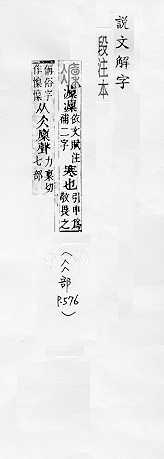 說文解字
段注本
凜凜依文賦注補二字寒也引申爲敬畏之
偁俗字作懍懍从仌廩聲力稟切七部
(仌部 P.576)